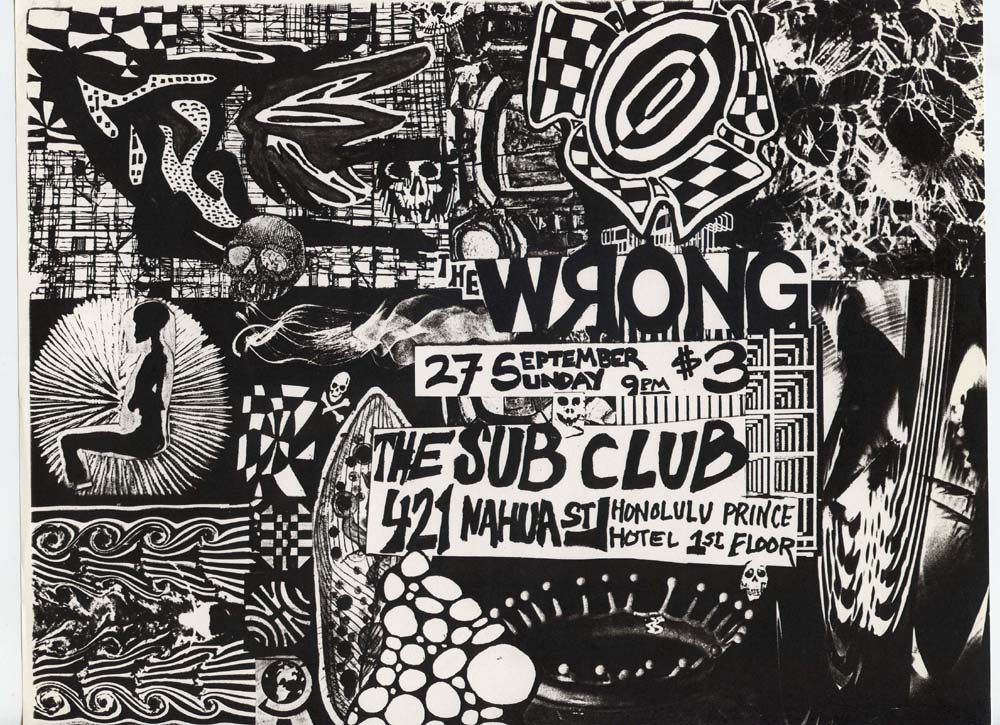 THE WRONG
27 SEPTEMBER SUNDAY 9PM $3
THE SUB CLUB
421 NAHUA ST HONOLULU PRINCE HOTEL 1ST FLOOR